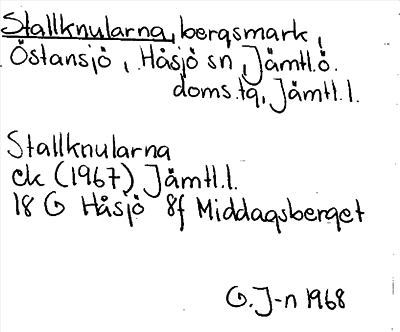 Stallknularna, bergsmark,
Östansjö, Håsjö sn, Jämtl.ö.
doms.tg, Jämtl.l.
Stallknularna
ek (1967) Jämtl.l.
18 G Håsjö 8f Middagsberget
G. J-n 1968